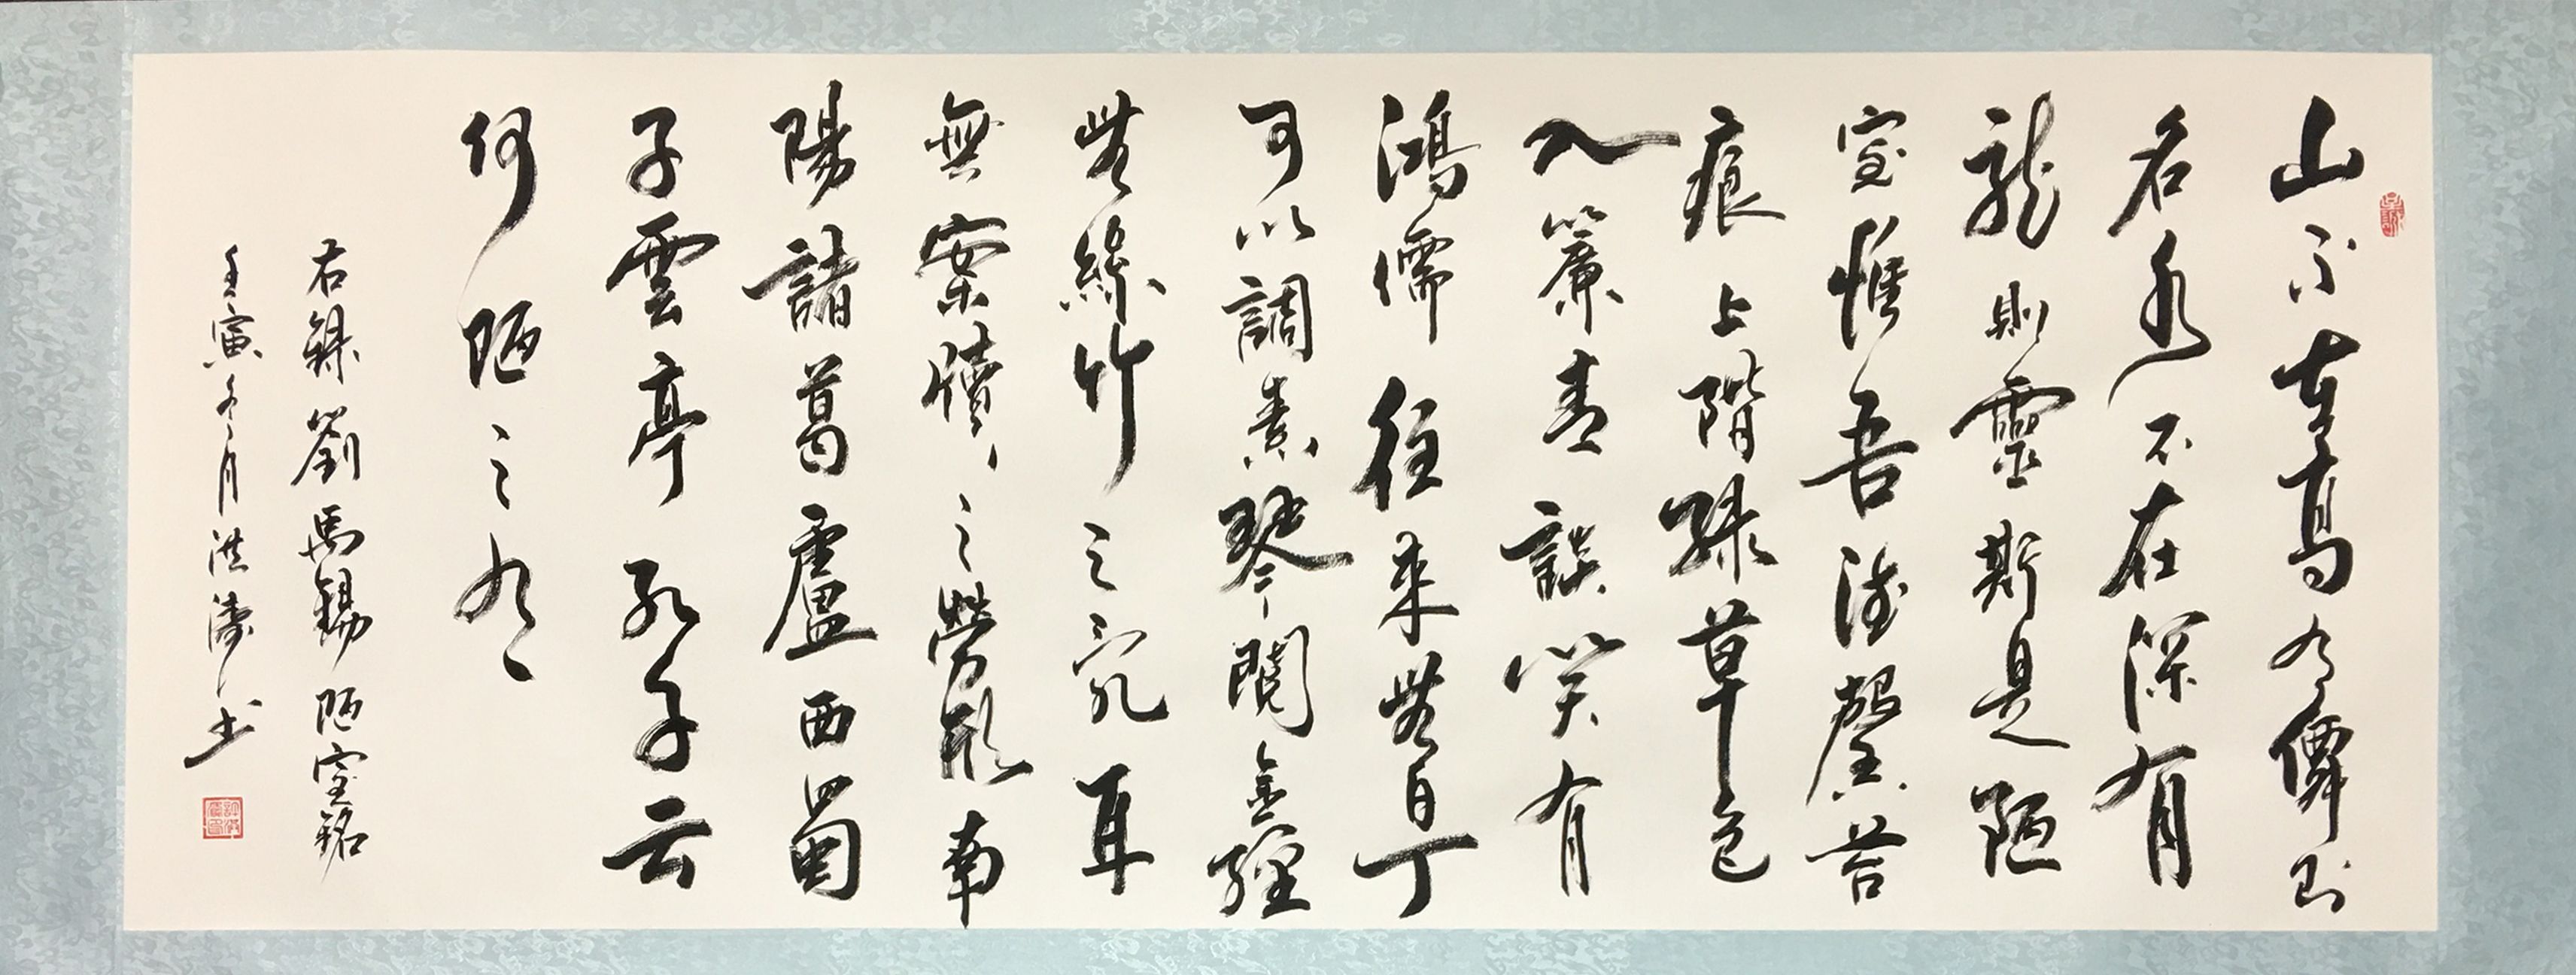 山不在高有僊則
名水不在深有
龍則靈斯是陋
室惟吾德馨苔
痕上階綠草色
入簾青談笑有
鴻儒往來無白丁
可以調素琴閱金經
無絲竹之亂耳
無案牘之勞形南
陽諸葛廬西蜀
子雲亭孔子云
何陋之有
右録劉禹錫陋室銘
壬寅冬月洪濤書